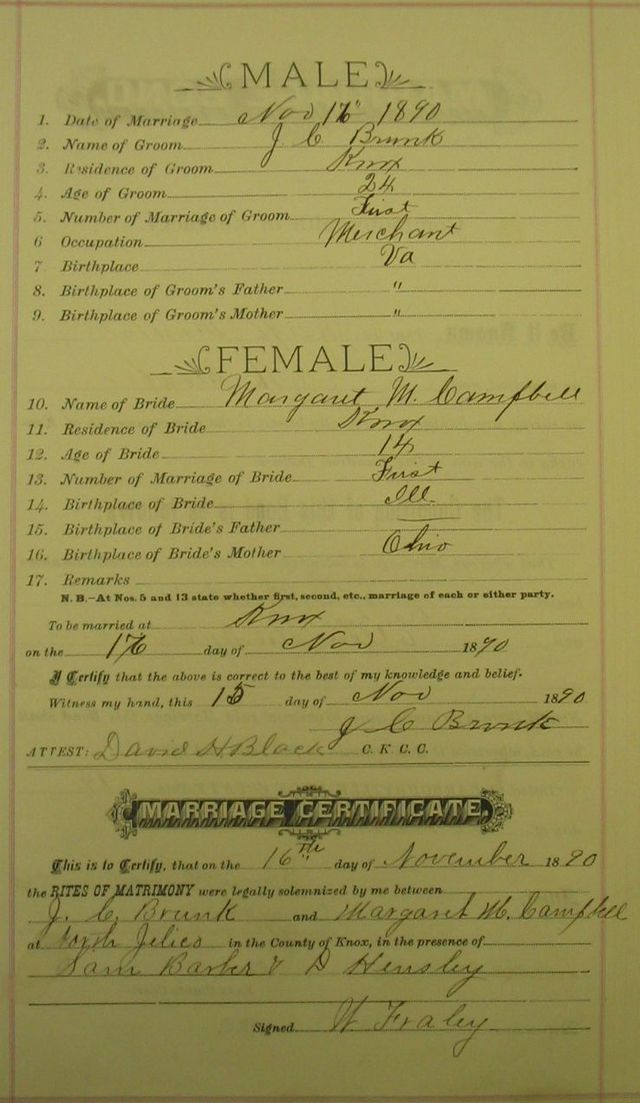 MALE
1. Date of Marriage Nov 16" 1890
2. Name of Groom J C Brunk
3. Residence of Groom Knox
4. Age of Groom 24
5. Number of Marriage of Groom First
6 Occupation Merchant
7 Birthplace Va
8. Birthplace of Groom's Father "
9. Birthplace of Groom's Mother "
FEMALE
10. Name of Bride Margaret M. Campbell
11. Residence of Bride Knox
12. Age of Bride 14
13. Number of Marriage of Bride First
14. Birthplace of Bride Ill.
15. Birthplace of Bride's Father —
16. Birthplace of Bride's Mother Ohio
17. Remarks
N. B.—At Nos. 5 and 13 state whether first, second, etc., marriage of each or either party.
To be married at Knox
on the 16 day of Nov 1890
I Certify that the above is correct to the best of my knowledge and belief.
Witness my hand, this 15 day of Nov 1890
J C Brunk
ATTEST: David H Black C. K. C. C.
MARRIAGE CERTIFICATE
This is to Certify, that on the 16th day of November 1890
the RITES OF MATRIMONY were legally solemnized by me between
J. C. Brunk and Margaret M. Campbell
at North Jelico in the County of Knox, in the presence of
Sam Barker & D Hensley
Signed W Fraley